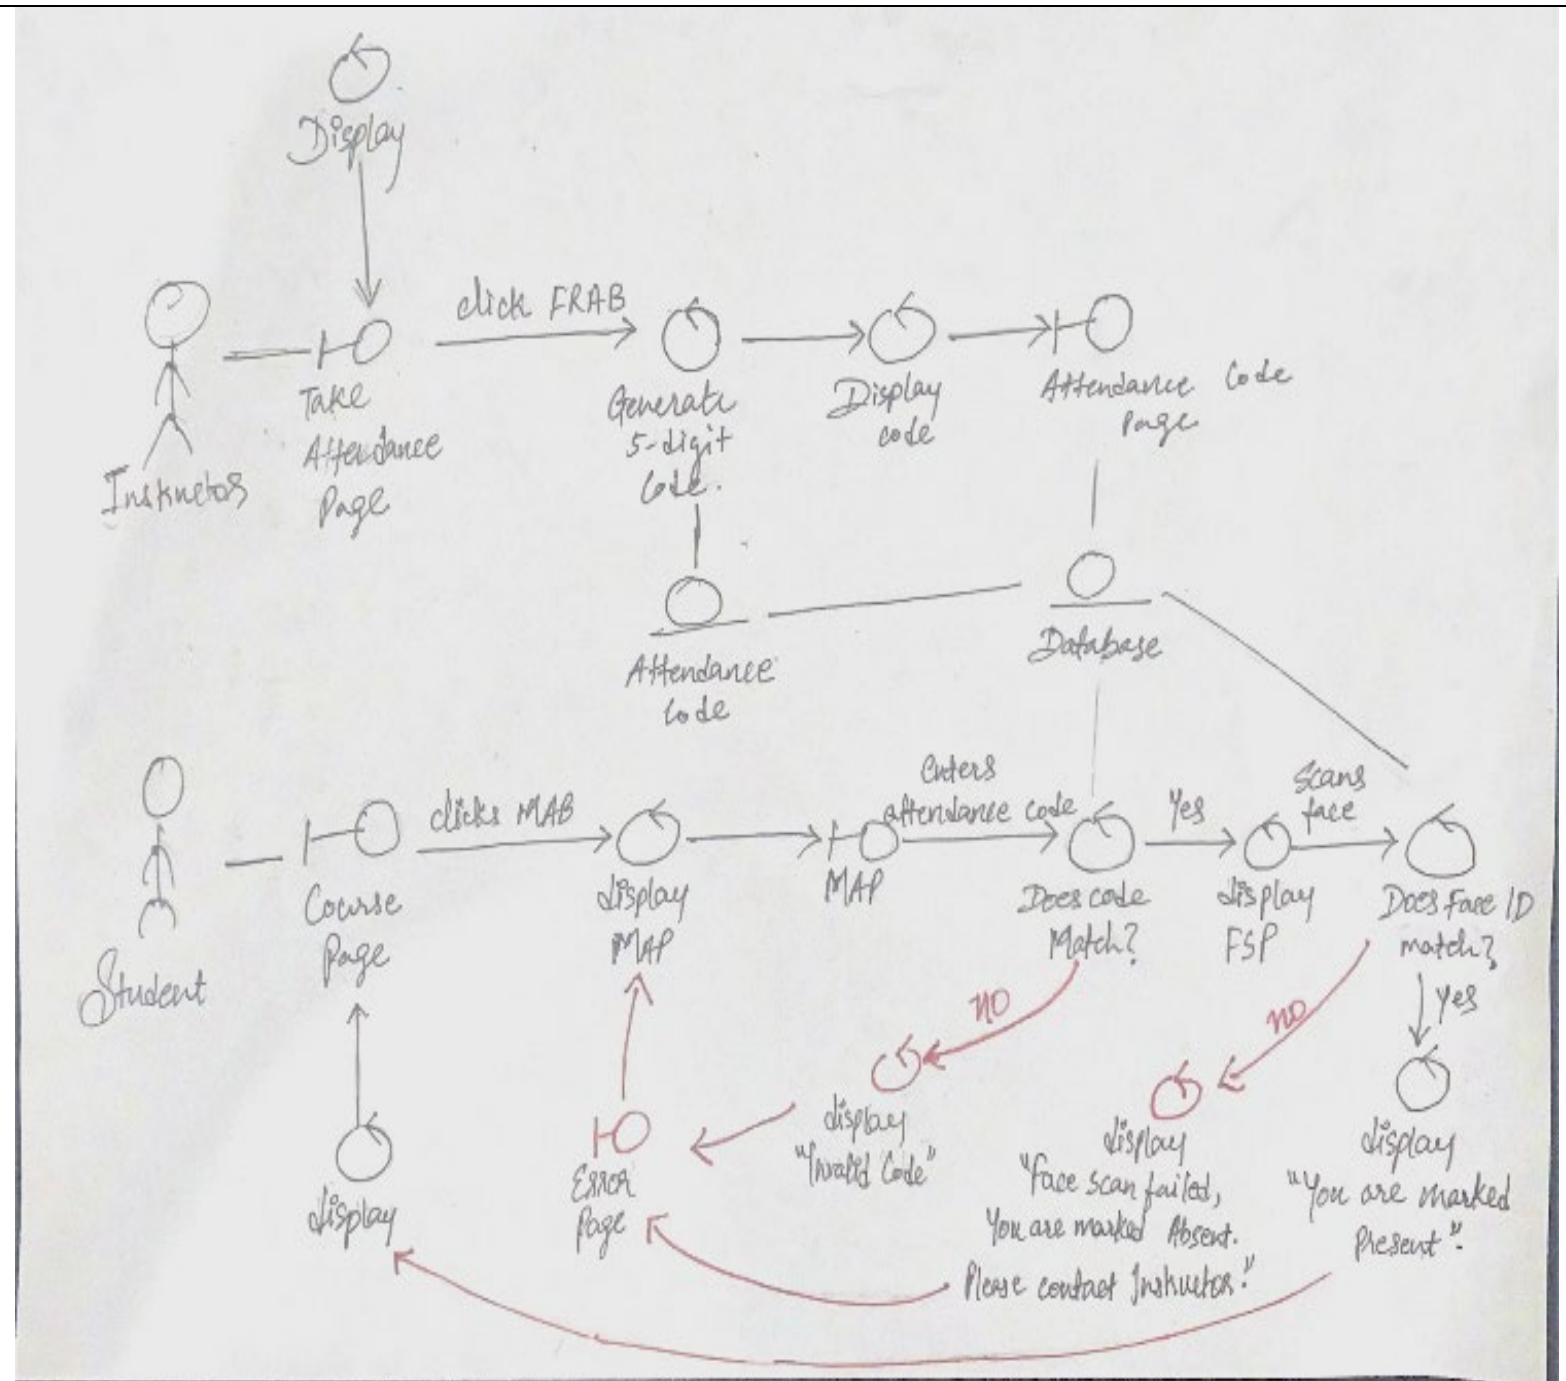 Display
click FRAB
Instructor
Take
Attendance
Page
Generate
5-digit
Code.
Display
code
Attendance Code
Page
Attendance
Code
Database
Student
Course
Page
clicks MAB
display
MAP
MAP
Enters
attendance code
Does code
Match?
Yes
display
FSP
Scans
face
Does Face ID
match?
no
no
Yes
display
Error
Page
display
"Invalid Code"
display
"Face scan failed,
You are marked Absent.
Please contact Instructor."
display
"You are marked
Present".